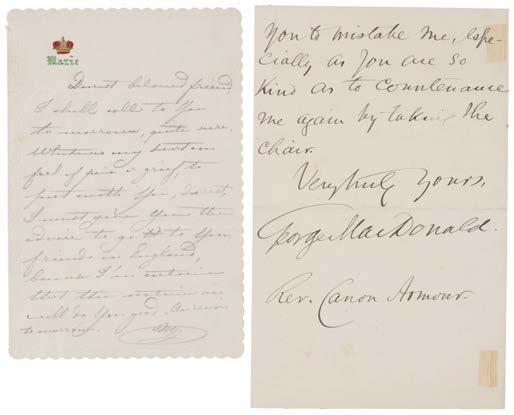 Marie
Dearest beloved friend,
I shall call to you
to morrow, quite sure.
Whatever my bosom
feel of pain & grief, to
part with you, dearest,
I must give you the
advice to go to your
friends in England,
because I'm certain
that the
will do you good. Au revoir
to morrow.
you to mistake me, espe-
cially as you are so
kind as to countenance
me again by taking the
chair.
Very truly yours,
George MacDonald.
Rev. Canon Armour.